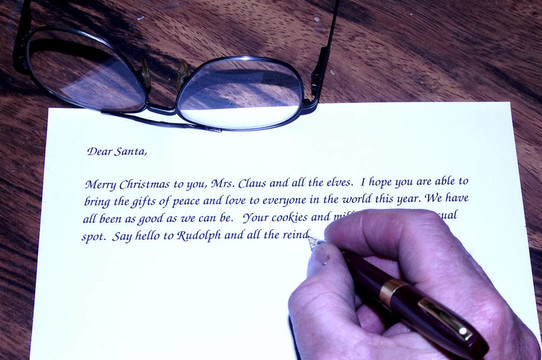 Dear Santa,
Merry Christmas to you, Mrs. Claus and all the elves. I hope you are able to
bring the gifts of peace and love to everyone in the world this year. We have
all been as good as we can be. Your cookies and
spot. Say hello to Rudolph and all the reind